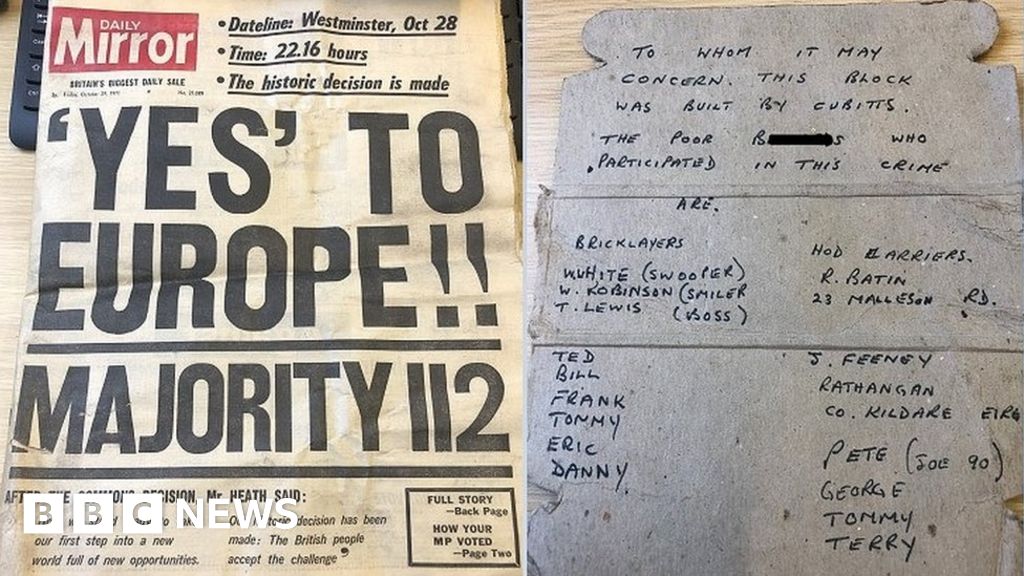 DAILY
Mirror
BRITAIN'S BIGGEST DAILY SALE
Friday, October 29, 1971
• Dateline: Westminster, Oct 28
• Time: 22.16 hours
• The historic decision is made
'YES' TO
EUROPE!!
MAJORITY 112
AFTER THE COMMONS DECISION, Mr. HEATH SAID:
our first step into a new
world full of new opportunities.
decision has been
made: The British people
accept the challenge
FULL STORY
—Back Page
HOW YOUR
MP VOTED
—Page Two
BBC NEWS
TO WHOM IT MAY
CONCERN. THIS BLOCK
WAS BUILT BY CUBITTS.
THE POOR B S WHO
PARTICIPATED IN THIS CRIME
ARE.
BRICKLAYERS
W.WHITE (SWOOPER)
W. ROBINSON (SMILER
T. LEWIS (BOSS)
TED
BILL
FRANK
TOMMY
ERIC
DANNY
HOD CARRIERS.
R. BATIN
23 MALLESON RD.
J. FEENEY
RATHANGAN
CO. KILDARE EIRE
PETE (JOE 90)
GEORGE
TOMMY
TERRY